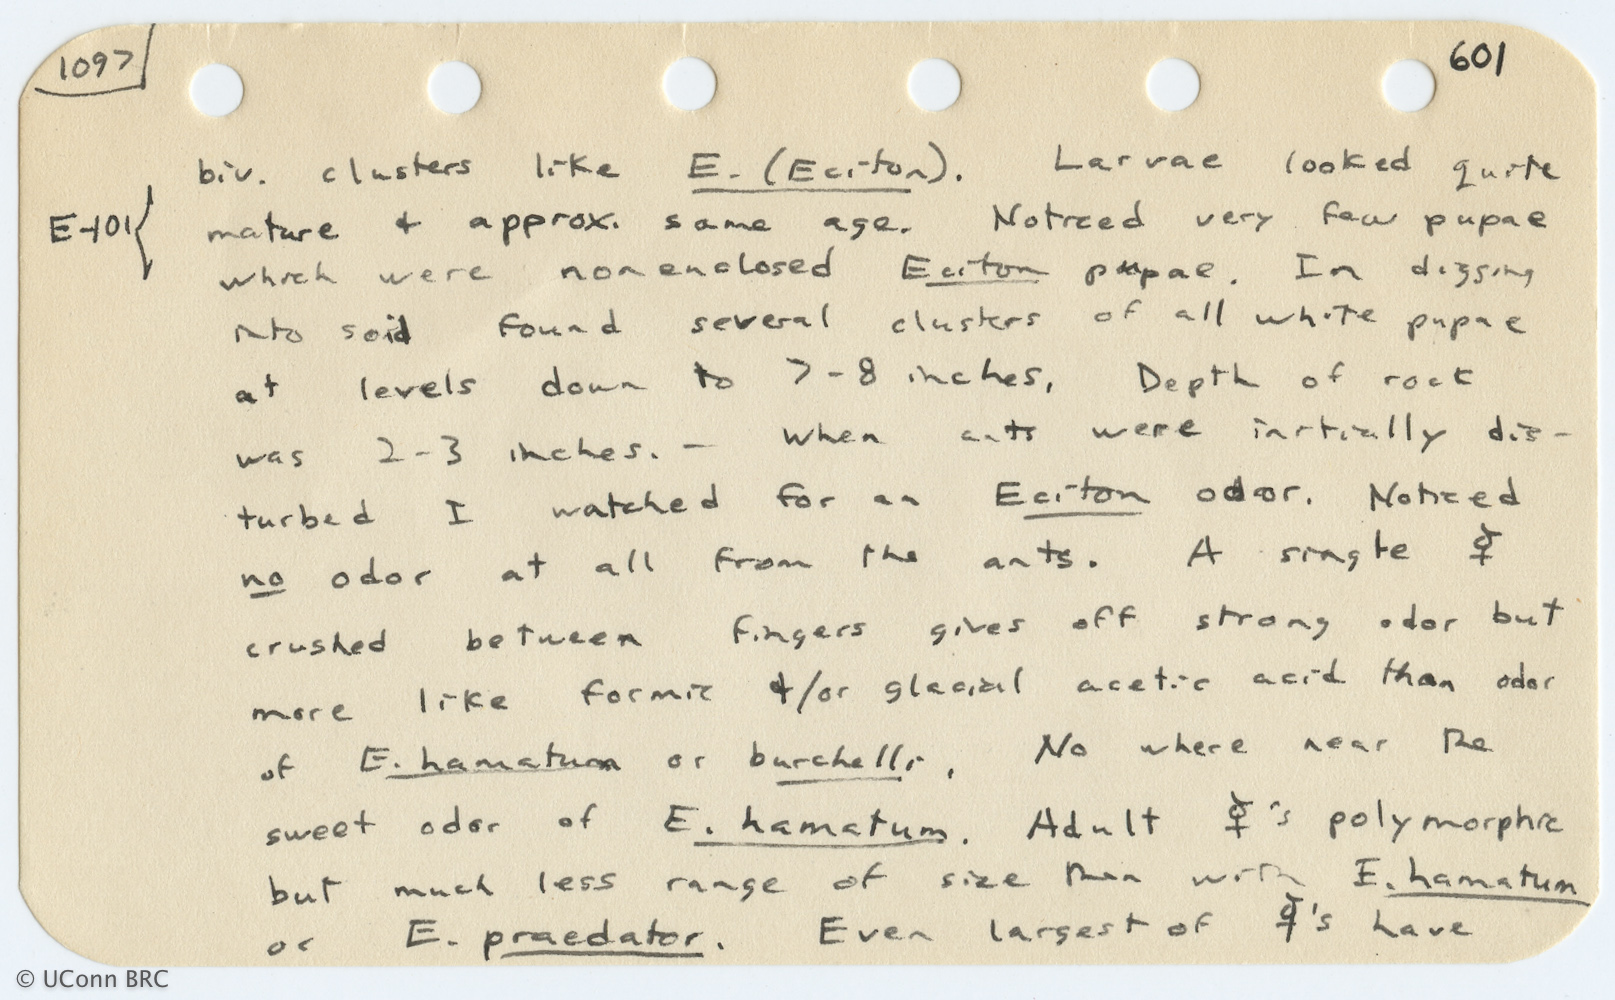 1097
601
biv. clusters like E. (Eciton). Larvae looked quite
E-101 { mature & approx. same age. Noticed very few pupae
which were nonenclosed Eciton pupae. In digging
into soil found several clusters of all white pupae
at levels down to 7-8 inches. Depth of rock
was 2-3 inches. — When ants were initially dis-
turbed I watched for an Eciton odor. Noticed
no odor at all from the ants. A single ☿
crushed between fingers gives off strong odor but
more like formic &/or glacial acetic acid than odor
of E. hamatum or burchelli. No where near the
sweet odor of E. hamatum. Adult ☿'s polymorphic
but much less range of size than with E. hamatum
or E. praedator. Even largest of ☿'s have
© UConn BRC